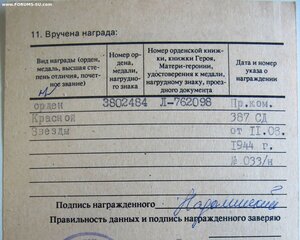 © www.FORUMS-SU.com
11. Вручена награда:
Вид награды (орден, медаль, высшая степень отличия, почетное звание)
Номер ордена, медали, нагрудного знака
Номер орденской книжки, книжки Героя, Матери-героини, удостоверения к медали, нагрудному знаку, проездного документа
Дата и номер указа о награждении
орден 3802484 Л-762098 Пр.ком.
Красной 387 СД
Звезды от 11.08.
1944 г.
№ 033/н
Подпись награжденного
Правильность данных и подпись награжденного заверяю